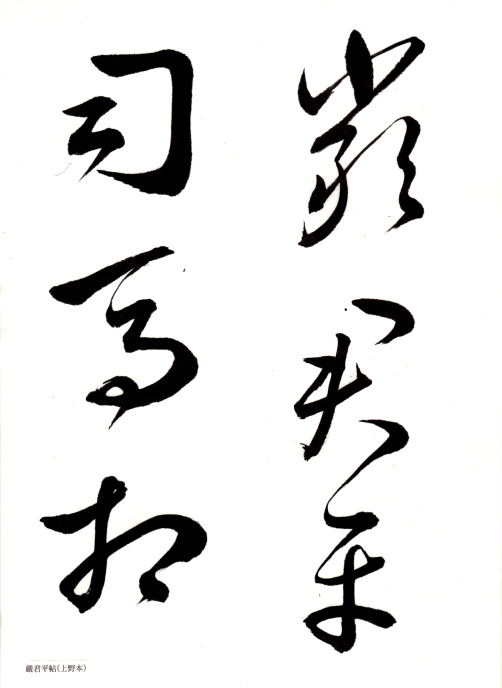 嚴君平
司馬相
嚴君平帖(上野本)